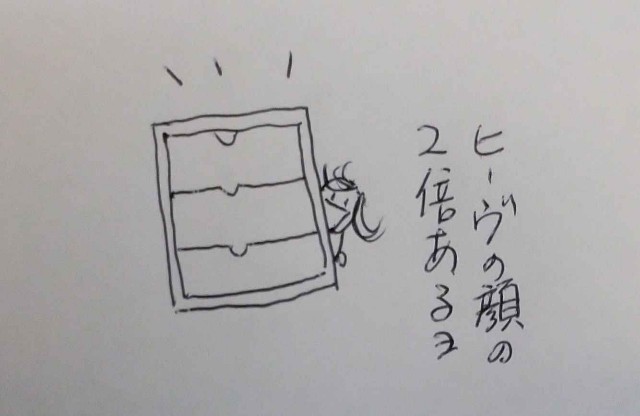 ヒーヴの顔の
２倍あるヨ